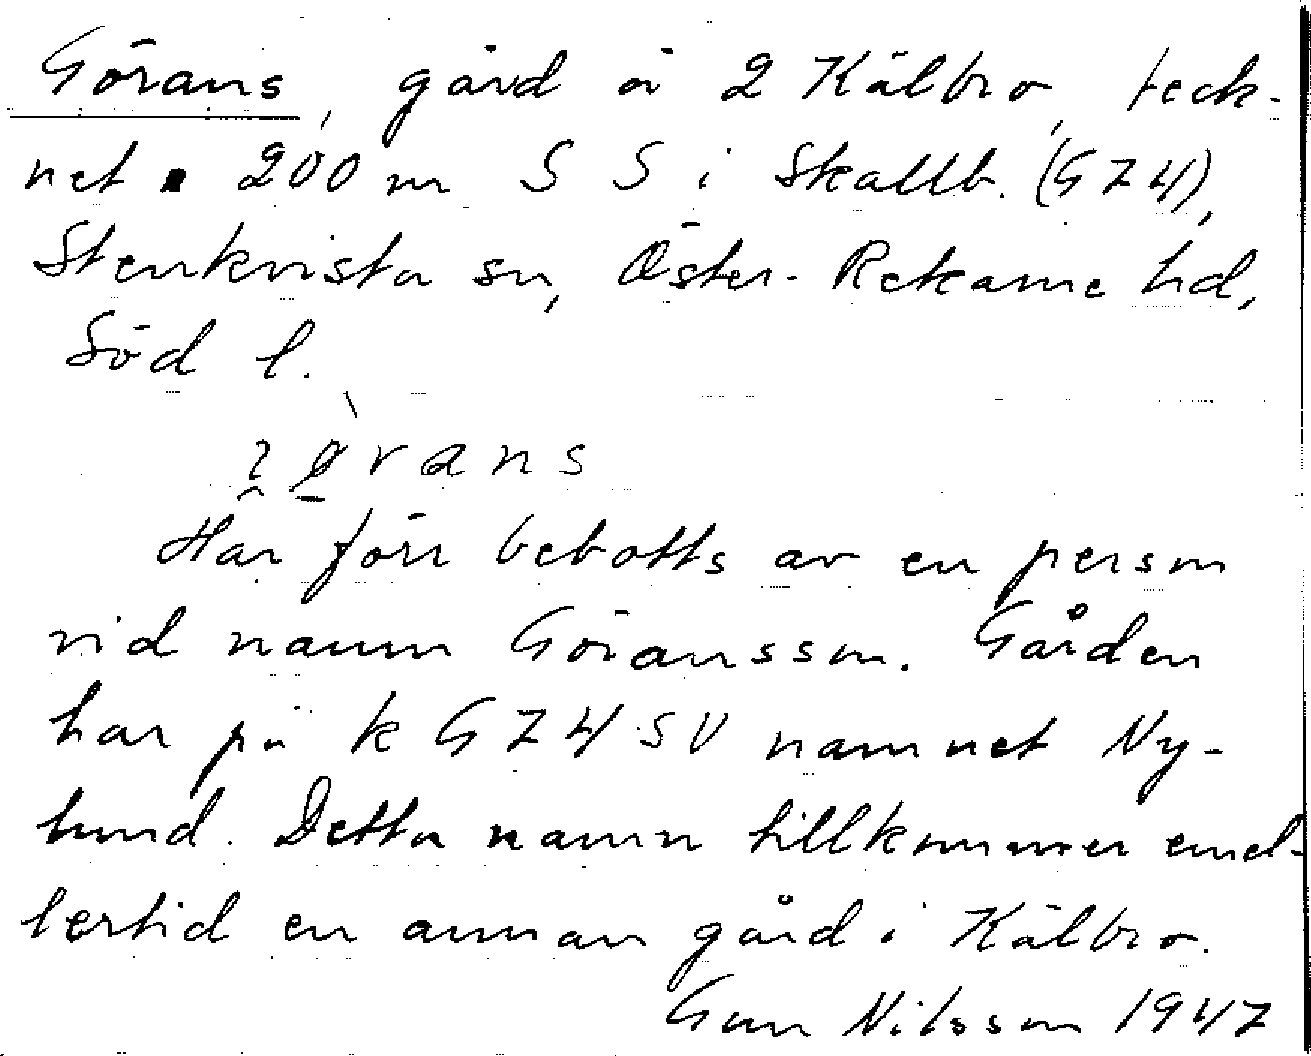 Görans, gård å 2 Kälbro, teck-
net 200 m S S i Skallb. (G 7 4),
Stenkvista sn, Öster-Rekarne hd,
Söd l.
rans
Har förr bebotts av en person
vid namn Göransson. Gården
har på k G 7 4 SV namnet Ny-
lund. Detta namn tillkommer emel-
lertid en annan gård i Kälbro.
Gun Nilsson 1947